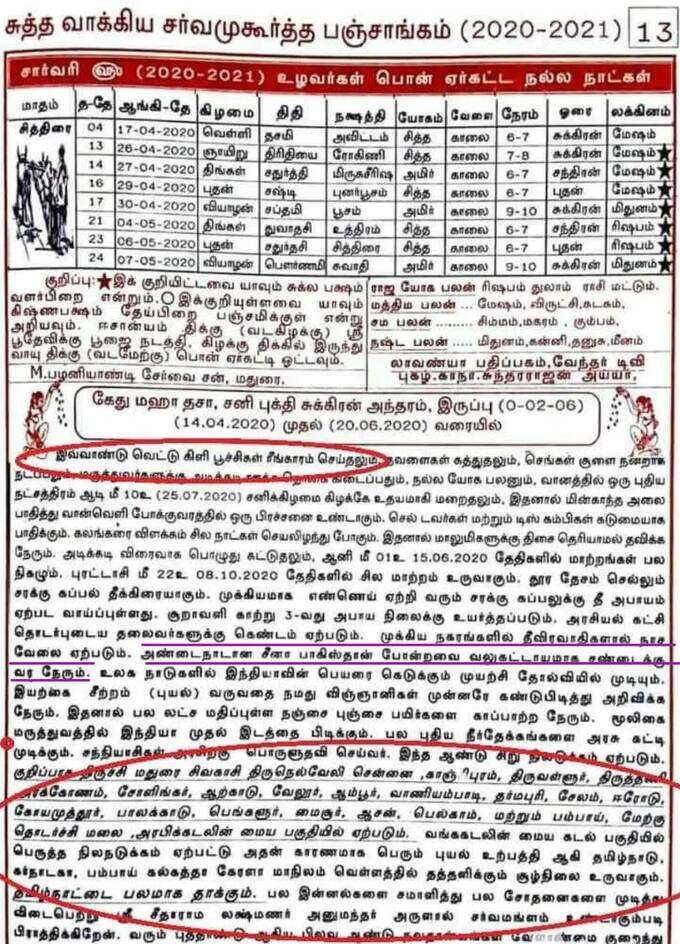 சுத்த வாக்கிய சர்வமுகூர்த்த பஞ்சாங்கம் (2020-2021) 13
சார்வரி ஹ (2020-2021) உழவர்கள் பொன் ஏர்கட்ட நல்ல நாட்கள்
மாதம் த-தே ஆங்கி-தே கிழமை திதி நக்ஷத்தி யோகம் வேளை நேரம் ஓரை லக்கினம்
சித்திரை 04 17-04-2020 வெள்ளி தசமி அவிட்டம் சித்த காலை 6-7 சுக்கிரன் மேஷம்
13 26-04-2020 ஞாயிறு திரிதியை ரோகிணி சித்த காலை 7-8 சுக்கிரன் மேஷம்★
14 27-04-2020 திங்கள் சதுர்த்தி மிருகசீரிஷ அமிர் காலை 6-7 சந்திரன் மேஷம்★
16 29-04-2020 புதன் சஷ்டி புனர்பூசம் சித்த காலை 6-7 புதன் மேஷம்★
17 30-04-2020 வியாழன் சப்தமி பூசம் அமிர் காலை 9-10 சுக்கிரன் மிதுனம்★
21 04-05-2020 திங்கள் துவாதசி உத்திரம் சித்த காலை 6-7 சந்திரன் ரிஷபம்★
23 06-05-2020 புதன் சதுர்தசி சித்திரை சித்த காலை 6-7 புதன் ரிஷபம்★
24 07-05-2020 வியாழன் பௌர்ணமி சுவாதி அமிர் காலை 9-10 சுக்கிரன் மிதுனம்★
குறிப்பு:★இக் குறியிட்டவை யாவும் சுக்ல பக்ஷம்
வளர்பிறை என்றும்.O இக்குறியுள்ளவை யாவும்
கிஷ்ணபக்ஷம் தேய்பிறை பஞ்சமிக்குள் என்று
அறியவும். ஈசான்யம் திக்கு (வடகிழக்கு) ஸ்ரீ
பூதேவிக்கு பூஜை நடத்தி. கிழக்கு திக்கில் இருந்து
வாயு திக்கு (வடமேற்கு) பொன் ஏர்கட்டி ஓட்டவும்.
M.பழனியாண்டி சேர்வை சன், மதுரை.
ராஜ யோக பலன் ரிஷபம் துலாம் ராசி மட்டும்.
மத்திம பலன் ... மேஷம், விருட்சி,கடகம்,
சம பலன் ......... சிம்மம்,மகரம் , கும்பம்,
நஷ்ட பலன் ..... மிதுனம்,கன்னி,தனுசு,மீனம்
லாவண்யா பதிப்பகம்,வேந்தர் டிவி
புகழ்.கா.நா.சுந்தரராஜன் அய்யா,
கேது மஹா தசா, சனி புக்தி சுக்கிரன் அந்தரம், இருப்பு (0-02-06)
(14.04.2020) முதல் (20.06.2020) வரையில்
இவ்வாண்டு வெட்டு கிளி பூச்சிகள் ரீங்காரம் செய்தலும், தவளைகள் கத்துதலும், செங்கள் குளை நன்றாக
நடப்பதும், மருத்துவர்களுக்கு அடிக்கடி கிடைப்பதும், நல்ல யோக பலனும், வானத்தில் ஒரு புதிய
நட்சத்திரம் ஆடி மீ 10உ (25.07.2020) சனிக்கிழமை கிழக்கே உதயமாகி மறைதலும், இதனால் மின்காந்த அலை
பாதித்து வான்வெளி போக்குவரத்தில் ஒரு பிரச்சனை உண்டாகும். செல் டவர்கள் மற்றும் டிஸ் கம்பிகள் கடுமையாக
பாதிக்கும். கலங்கரை விளக்கம் சில நாட்கள் செயலிழந்து போகும். இதனால் மாலுமிகளுக்கு திசை தெரியாமல் தவிக்க
நேரும். அடிக்கடி விரைவாக பொழுது கட்டுதலும், ஆனி மீ 01உ 15.06.2020 தேதிகளில் மாற்றங்கள் பல
நிகழும். புரட்டாசி மீ 22உ 08.10.2020 தேதிகளில் சில மாற்றம் உருவாகும். தூர தேசம் செல்லும்
சரக்கு கப்பல் தீக்கிரையாகும். முக்கியமாக எண்ணெய் ஏற்றி வரும் சரக்கு கப்பலுக்கு தீ அபாயம்
ஏற்பட வாய்ப்புள்ளது. சூறாவளி காற்று 3-வது அபாய நிலைக்கு உயர்த்தப்படும். அரசியல் கட்சி
தொடர்புடைய தலைவர்களுக்கு கெண்டம் ஏற்படும். முக்கிய நகரங்களில் தீவிரவாதிகளால் நாச
வேலை ஏற்படும். அண்டைநாடான சீனா பாகிஸ்தான் போன்றவை வலுகட்டாயமாக சண்டைக்கு
வர நேரும். உலக நாடுகளில் இந்தியாவின் பெயரை கெடுக்கும் முயற்சி தோல்வியில் முடியும்.
இயற்கை சீற்றம் (புயல்) வருவதை நமது விஞ்ஞானிகள் முன்னரே கண்டுபிடித்து அறிவிக்க
நேரும். இதனால் பல லட்ச மதிப்புள்ள நஞ்சை புஞ்சை பயிர்களை காப்பாற்ற நேரும். மூலிகை
மருத்துவத்தில் இந்தியா முதல் இடத்தை பிடிக்கும். பல புதிய நீர்தேக்கங்களை அரசு கட்டி
முடிக்கும். சந்நியாசிகள் அரசிற்கு பொருளுதவி செய்வர். இந்த ஆண்டு சிறு நிலநடுக்கம் ஏற்படும்.
குறிப்பாக திருச்சி மதுரை சிவகாசி திருநெல்வேலி சென்னை ,காஞ்சிபுரம், திருவள்ளூர், திருத்தணி
அரக்கோணம், சோளிங்கர், ஆற்காடு, வேலூர், ஆம்பூர், வாணியம்பாடி, தர்மபுரி, சேலம், ஈரோடு,
கோயமுத்தூர், பாலக்காடு, பெங்களூர், மைசூர், ஆசன், பெல்காம், மற்றும் பம்பாய், மேற்கு
தொடர்ச்சி மலை ,அரபிக்கடலின் மைய பகுதியில் ஏற்படும். வங்ககடலின் மைய கடல் பகுதியில்
பெருத்த நிலநடுக்கம் ஏற்பட்டு அதன் காரணமாக பெரும் புயல் உற்பத்தி ஆகி தமிழ்நாடு,
கர்நாடகா, பம்பாய் கல்கத்தா கேரளா மாநிலம் வெள்ளத்தில் தத்தளிக்கும் சூழ்நிலை உருவாகும்.
தமிழ்நாட்டை பலமாக தாக்கும். பல இன்னல்களை சமாளித்து பல சோதனைகளை முடித்து
விடைபெற்று ஸ்ரீ சீதாராம லஷ்மணர் அனுமந்தர் அருளால் சர்வமங்களம் உண்டாகும்படி
பிராத்திக்கிறேன். வரும் புத்தாண்டு ஆகிய பிலவ ஆண்டு